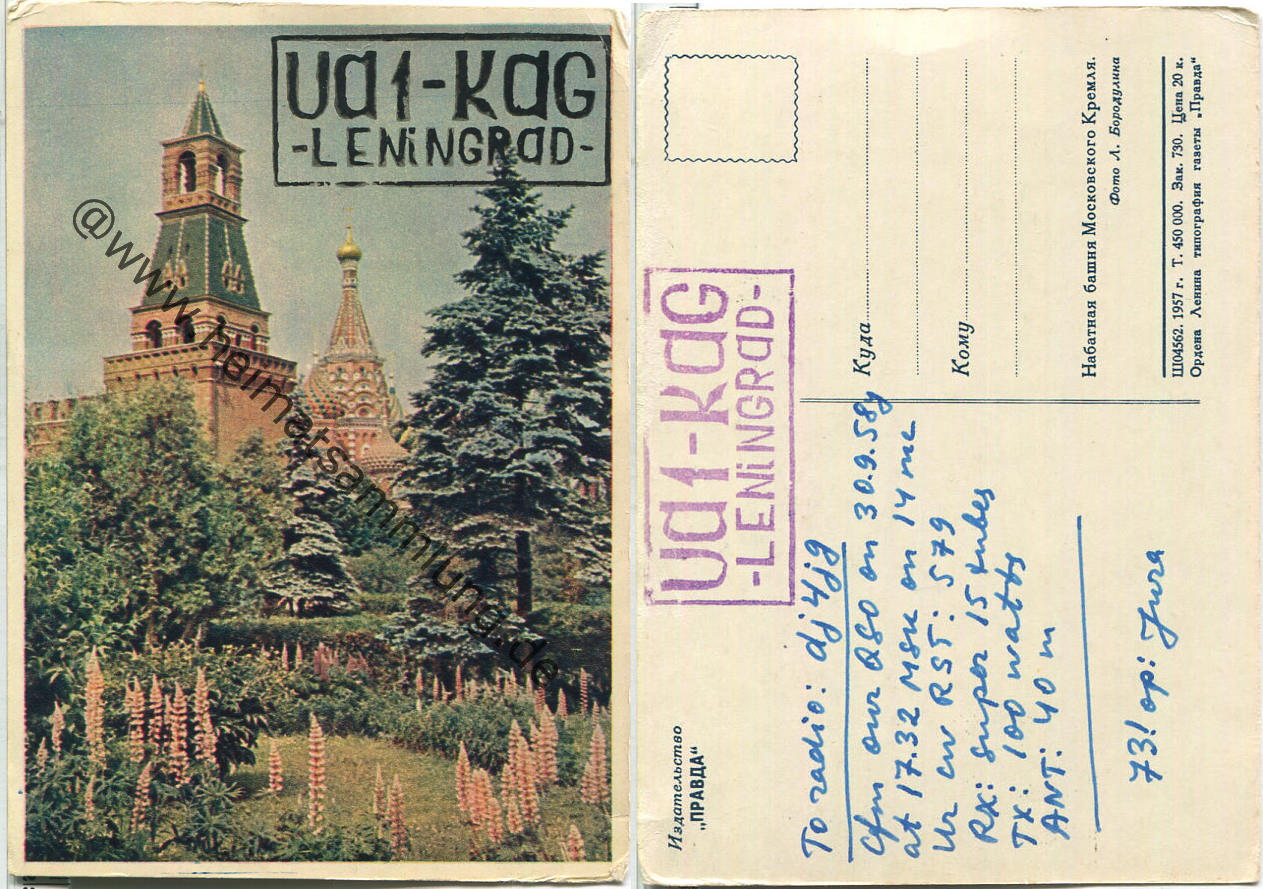 UA1-KAG
-LENiNGRAD-
@www.heimatsammlung.de
Издательство
„ПРАВДА“
UA1-KAG
-LENiNGRAD-
To radio: dj4jg
Cfm our QSO on 30.9.58y
at 17.32 MSK on 14 mc
Ur cw RST: 579
RX: super 15 tubes
TX: 100 watts
ANT: 40 m
73! op: Jura
Куда
Кому
Набатная башня Московского Кремля.
Фото Л. Бородулина
Ш04562. 1957 г. Т. 450 000. Зак. 730. Цена 20 к.
Ордена Ленина типография газеты „Правда“